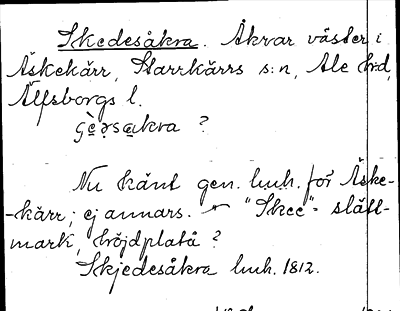 Skedesåkra. Åkrar väster i
Äskekärr, Starrkärrs s:n, Ale hrd,
Älfsborgs l.
sakra ?
Nu känt gen. huh. för Äske-
-kärr; ej annars. "Skee"- slått-
mark, höjdplatå ?
Skjedesåkra huh. 1812.